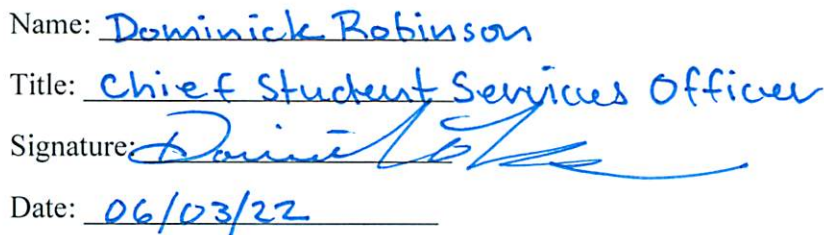 Name: Dominick Robinson
Title: Chief Student Services Officer
Signature:
Date: 06/03/22